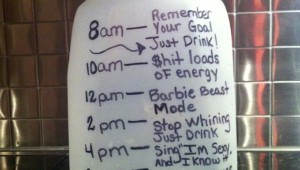 Remember
8am — Your Goal
Just Drink!
10am — $hit loads
of energy
12pm — Barbie Beast
Mode
2 pm — Stop Whining
Just Drink
4 pm — Sing "I'm Sexy
And I know it"